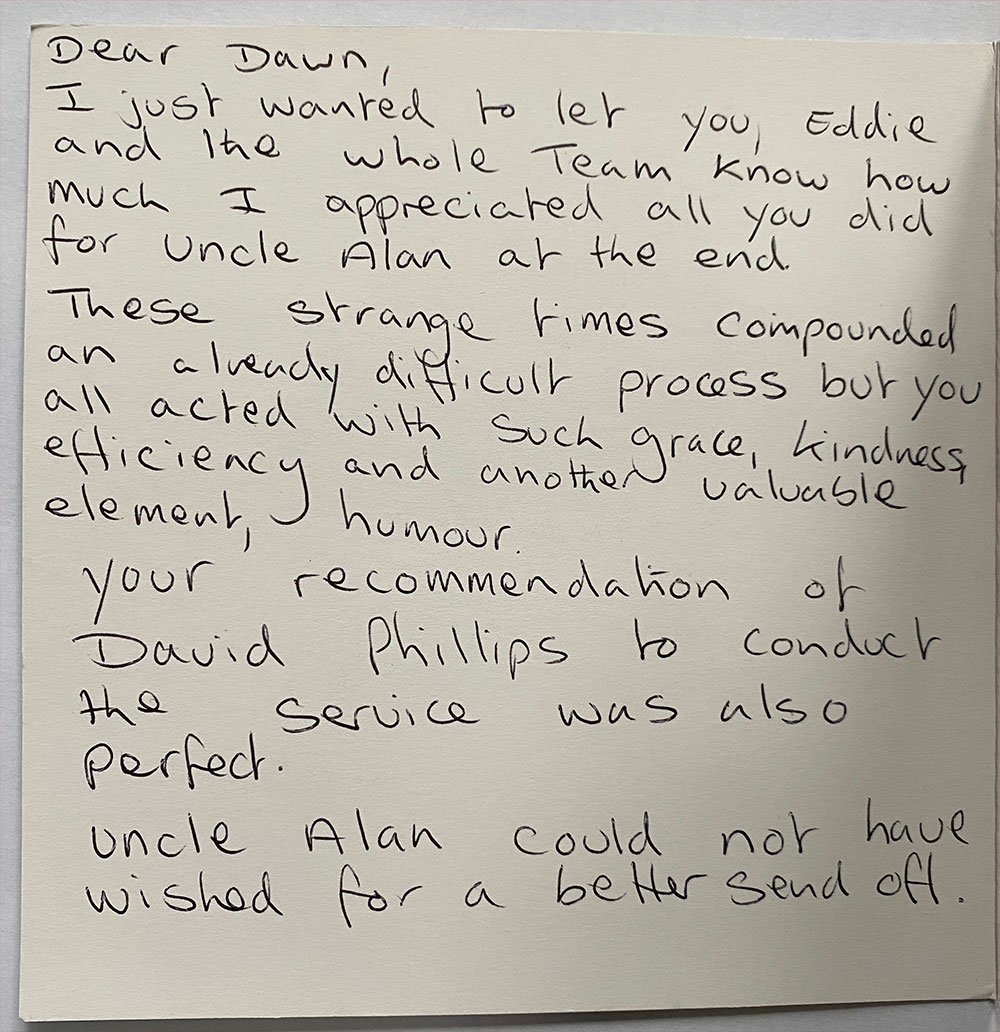 Dear Dawn,
I just wanted to let you, Eddie
and the whole Team know how
much I appreciated all you did
for Uncle Alan at the end.
These strange times compounded
an already difficult process but you
all acted with such grace, kindness,
efficiency and another valuable
element, humour.
Your recommendation of
David Phillips to conduct
the service was also
perfect.
Uncle Alan could not have
wished for a better send off.